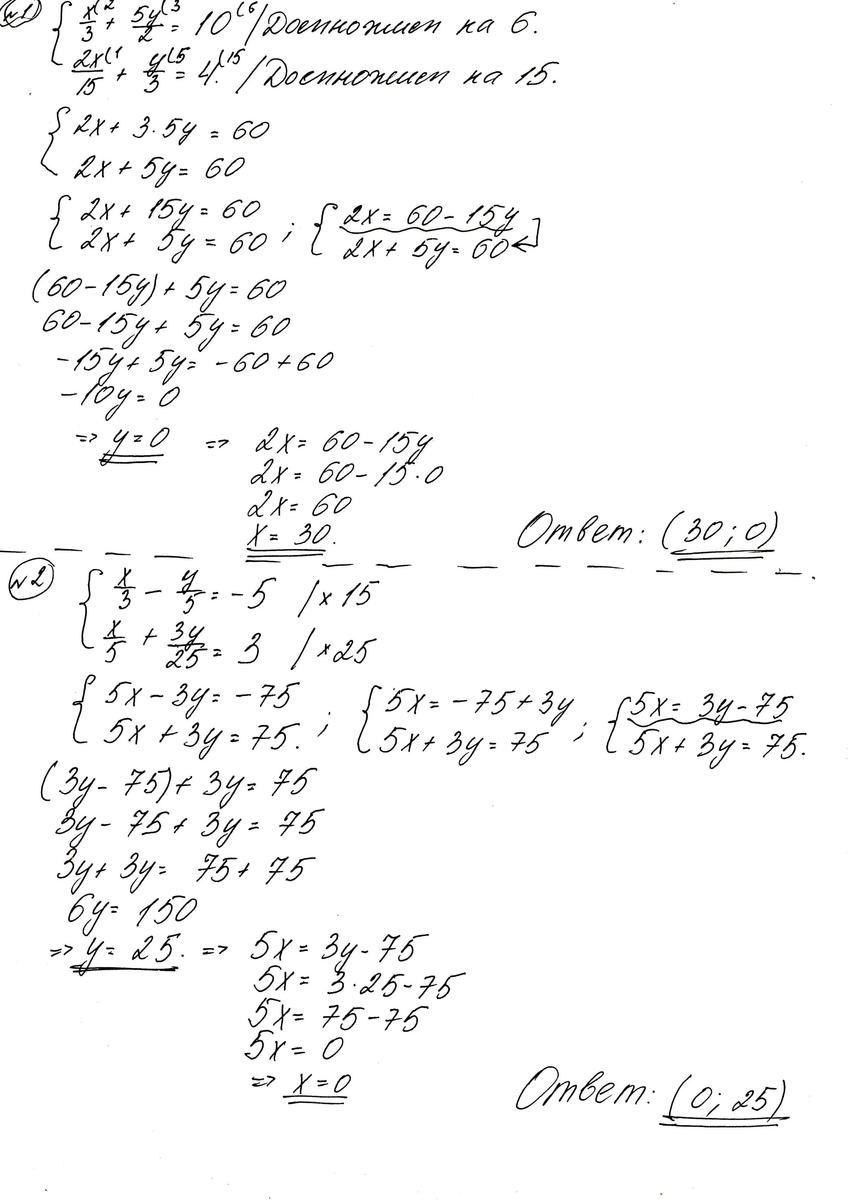 №1 { x/3 (2 + 5y/2 (3 = 10 (6 / Домножим на 6.
2x/15 (1 + y/3 (5 = 4. (15 / Домножим на 15.
{ 2x + 3·5y = 60
2x + 5y = 60
{ 2x + 15y = 60 ; { 2x = 60 - 15y
2x + 5y = 60 2x + 5y = 60 ←
(60 - 15y) + 5y = 60
60 - 15y + 5y = 60
-15y + 5y = -60 + 60
-10y = 0
=> y = 0 => 2x = 60 - 15y
2x = 60 - 15·0
2x = 60
x = 30.
Ответ: (30; 0)
№2 { x/3 - y/5 = -5 / ×15
x/5 + 3y/25 = 3 / ×25
{ 5x - 3y = -75 ; { 5x = -75 + 3y ; { 5x = 3y - 75
5x + 3y = 75. 5x + 3y = 75 5x + 3y = 75.
(3y - 75) + 3y = 75
3y - 75 + 3y = 75
3y + 3y = 75 + 75
6y = 150
=> y = 25. => 5x = 3y - 75
5x = 3·25 - 75
5x = 75 - 75
5x = 0
=> x = 0
Ответ: (0; 25)